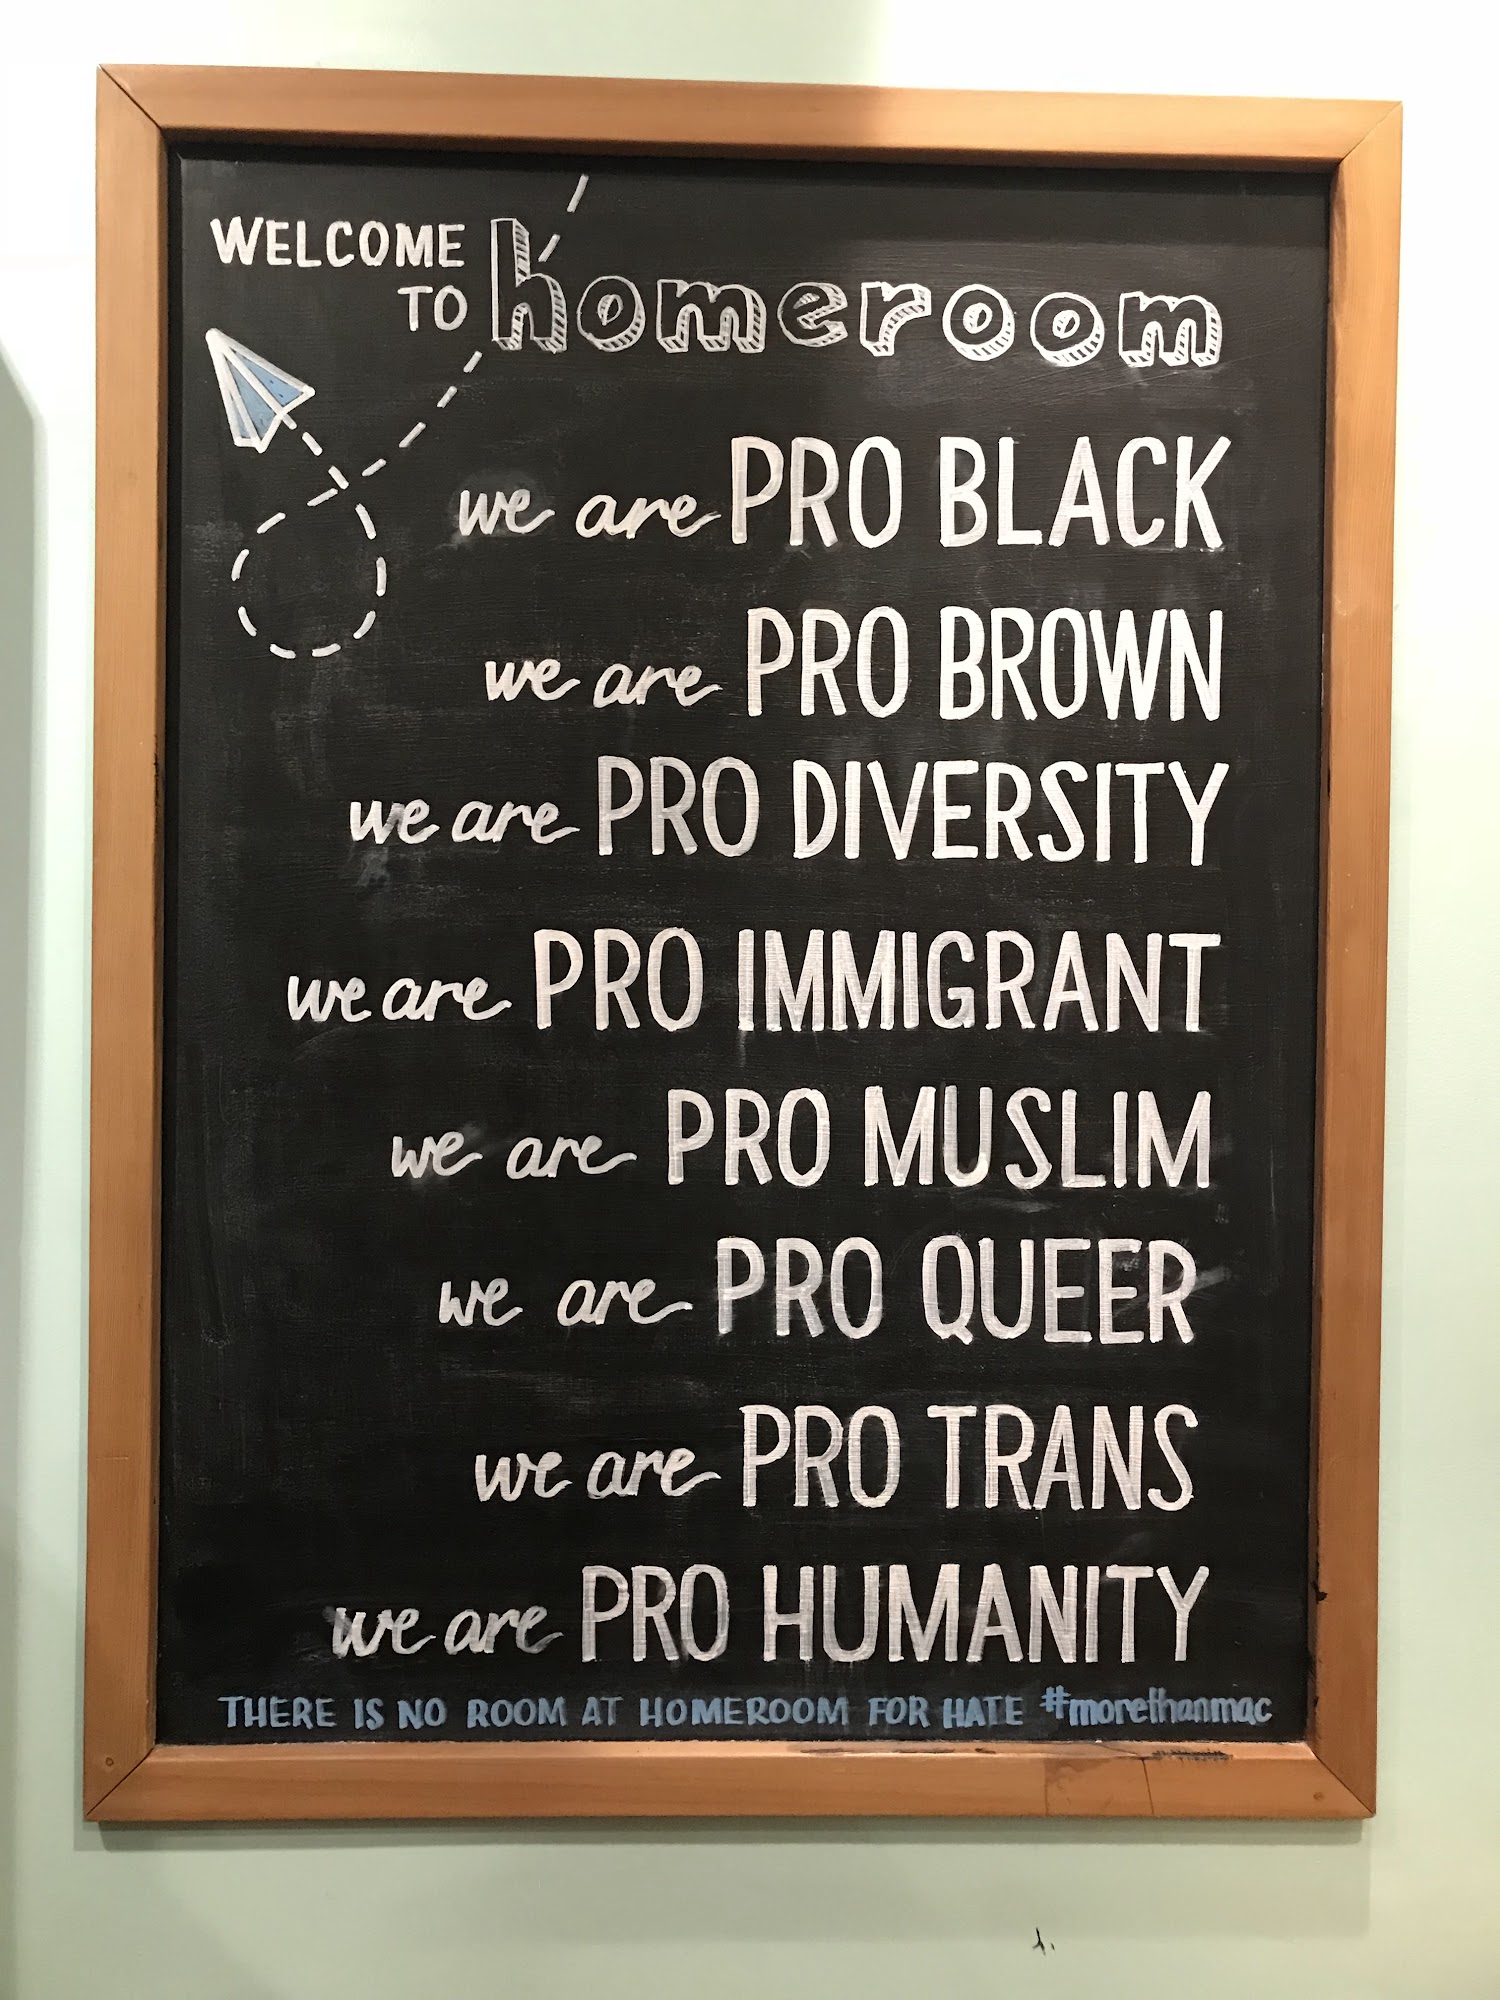 WELCOME
TO homeroom
we are PRO BLACK
we are PRO BROWN
we are PRO DIVERSITY
we are PRO IMMIGRANT
we are PRO MUSLIM
we are PRO QUEER
we are PRO TRANS
we are PRO HUMANITY
THERE IS NO ROOM AT HOMEROOM FOR HATE #morethanmac